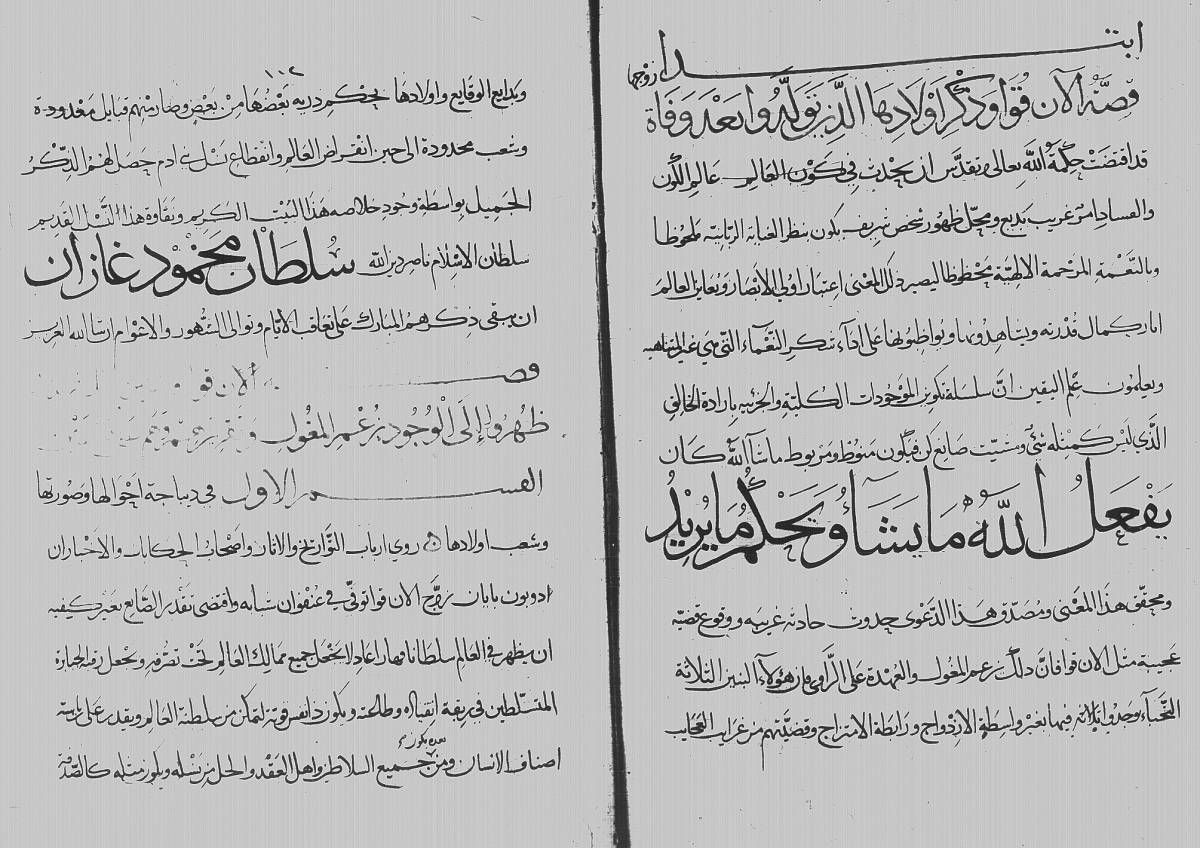 ابتدا
قصّه آلان قوا وذكر اولادها الذين تولدوا بعد وفاة زوجها
قد اقتضت حكمة الله تعالى وتقدس ان يحدث في كون العالم عالم الكون
والفساد امر غريب بديع ومحل ظهور شخص شريف يكون بنظر العناية الربانية ملحوظا
وبالنعمة المرحمة الالهية محظوظا ليصير ذلك المعنى اعتبار اولي الابصار ويعاين العالم
اثار كمال قدرته ويشاهدونها ويواظبونها على اداء شكر النعماء التي هي غير المتناهيه
ويعلمون علم اليقين ان سلسلة تكوين الموجودات الكلية والجزئية بارادة الخالق
الذي ليس كمثله شئ ومشيت صانع كن فيكون منوط ومربوط ماشا الله كان
يفعل الله ما يشاء ويحكم ما يريد
ومحقق هذا المعنى ومصدق هذا الدعوى حدوث حادثه غريبه ووقوع قضية
عجيبة مثل الان قوا فان ذلك بزعم المغول والعهدة على الراوي فان هؤلاء البنين الثلاثة
النجباء وجدوا ثلاثتهم بغير واسطة الازدواج ورابطة الامتزاج وقضيتهم من غرايب العجايب
١١٢
وبدايع الوقايع واولادها بحكم ذرية بعضها من بعض وصار منهم قبايل معدودة
وشعب محدودة الى حين انقراض العالم وانقطاع نسل بني ادم حصل لهم الذكر
الجميل بواسطة وجود خلاصه هذا البيت الكريم ونقاوة هذا النسل القديم
سلطان الاسلام ناصر دين الله سلطان محمود غازان
ان يبقى ذكرهم المبارك على تعاقب الايام وتوالى الشهور والاعوام ان شا الله العزيز
قصه الان قوا
ظهروا إلى الوجود بزعم المغول
القسم الاول في ديباجة احوالها وصورتها
وشعب اولادها روي ارباب التواريخ والاثار واصحاب الحكايات والاخبار ان
ادوبون بايان زوج الان قوا توفى في عنفوان شبابه واقتضى تقدير الصانع بغير كيفيه
ان يظهر في العالم سلطانا قهارا عادلا يجعل جميع ممالك العالم تحت تصرفه ويجعل رقبة الجبابرة
المتسلطين في ربقة انقياده وطاعته ويكون ذا نفس قوية لتمكن من سلطنة العالم ويقدر على تربية
اصناف الانسان ومن بعده يكون جميع السلاطين واهل العقد والحل من نسله ويكون مثله كالصدفة